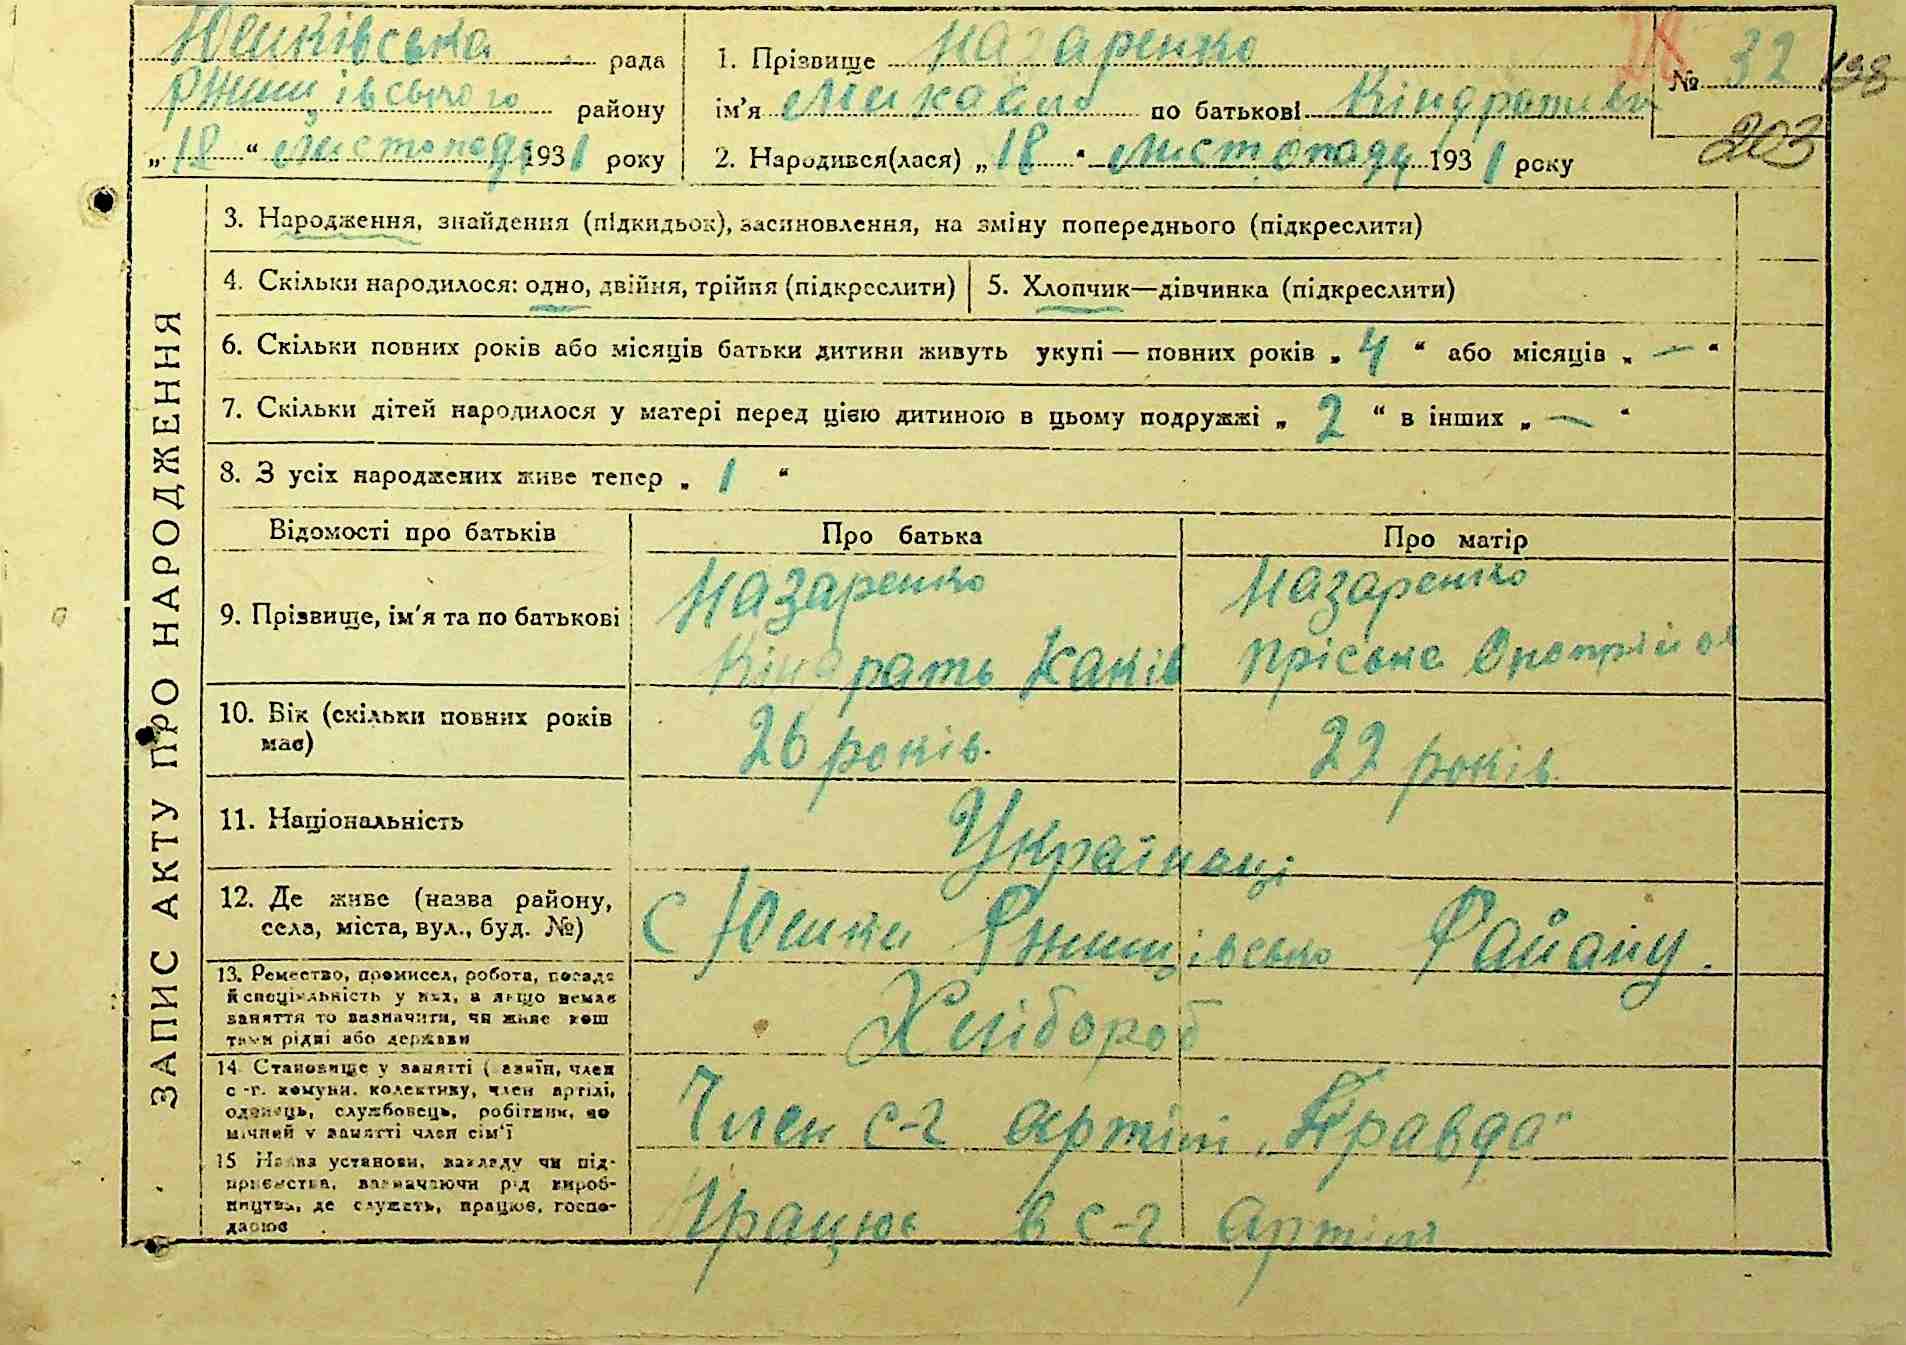 Юшківська рада
Ржищівського району
„18“ Листопада 1931 року
1. Прізвище Назаренко
ім'я Михайло по батькові Кіндратович
2. Народився(лася) „18“ Листопаду 1931 року
№ 32
193
203
ЗАПИС АКТУ ПРО НАРОДЖЕННЯ
3. Народження, знайдення (підкидьок), засиновлення, на зміну попереднього (підкреслити)
4. Скільки народилося: одно, двійня, трійня (підкреслити)
5. Хлопчик—дівчинка (підкреслити)
6. Скільки повних років або місяців батьки дитини живуть укупі — повних років „4“ або місяців „—“
7. Скільки дітей народилося у матері перед цією дитиною в цьому подружжі „2“ в інших „—“
8. З усіх народжених живе тепер „1“
Відомості про батьків Про батька Про матір
9. Прізвище, ім'я та по батькові
Назаренко
Кіндрать
Назаренко
Пріська
10. Вік (скільки повних років має)
26 років.
22 років.
11. Національність
Українці
12. Де живе (назва району,
села, міста, вул., буд. №)
с Юшки Ржищівсько Району.
13. Ремество, промисел, робота, посада
й спеціяльність у них, а якщо немає
заняття то вазначити, чи живе кош
тами рідні або держави
Хлібороб
14. Становище у занятті (хазяїн, член
с.-г. комуни, колективу, член артілі,
одинець, службовець, робітник, по
мічний у занятті член сім'ї
Член с-г артілі „Правда“
15 Назва установи, закладу чи під-
приємства, вазначаючи рід вироб-
ництва, де служить, працює, госпо-
дарює
Працює в с-г артілі